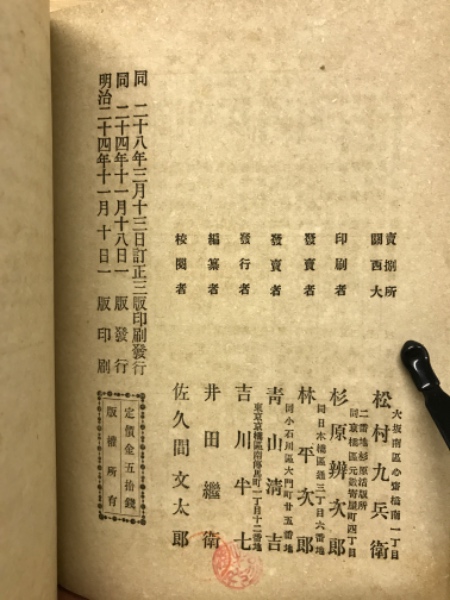 明治二十四年十一月十日一版印刷
同 二十四年十一月十八日一版發行
同 二十八年三月十三日訂正三版印刷發行
定價金五拾錢
版權所有
校閱者 佐久間文太郎
編纂者 井田繼衛
發行者 吉川半七
東京京橋區南傳馬町一丁目十二番地
發賣者 靑山淸吉
同小石川區大門町廿五番地
發賣者 林平次郎
同日本橋區通三丁目六番地
印刷者 杉原辨次郎
同京橋區元數寄屋町四丁目
二番地杉原活版所
關西大
賣捌所 松村九兵衛
大坂南區心齋橋南一丁目